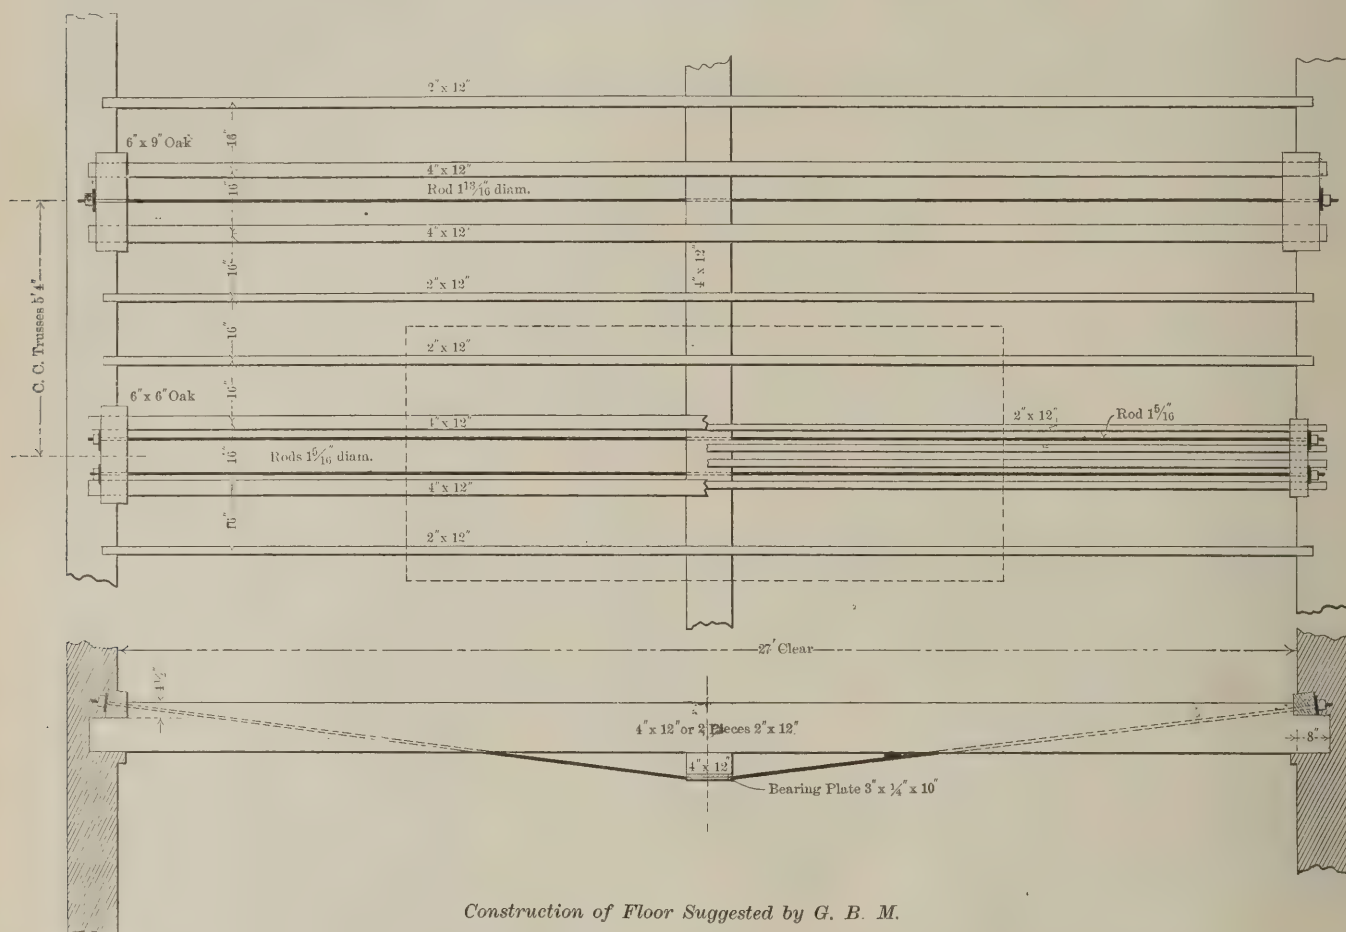 2" x 12"
6" x 9" Oak
16"
4" x 12"
16"
Rod 1 13/16 diam.
4" x 12"
4" x 12"
16"
2" x 12"
C. C. Trusses 5' 4"
16"
2" x 12"
6" x 6" Oak
16"
4" x 12"
2" x 12"
Rod 1 5/16"
16"
Rods 1 5/16 diam.
4" x 12"
16"
2" x 12"
27' Clear
4 1/2"
4" x 12" or 2 Pieces 2" x 12"
8"
4" x 12"
Bearing Plate 3" x 1/4" x 10"
Construction of Floor Suggested by G. B. M.